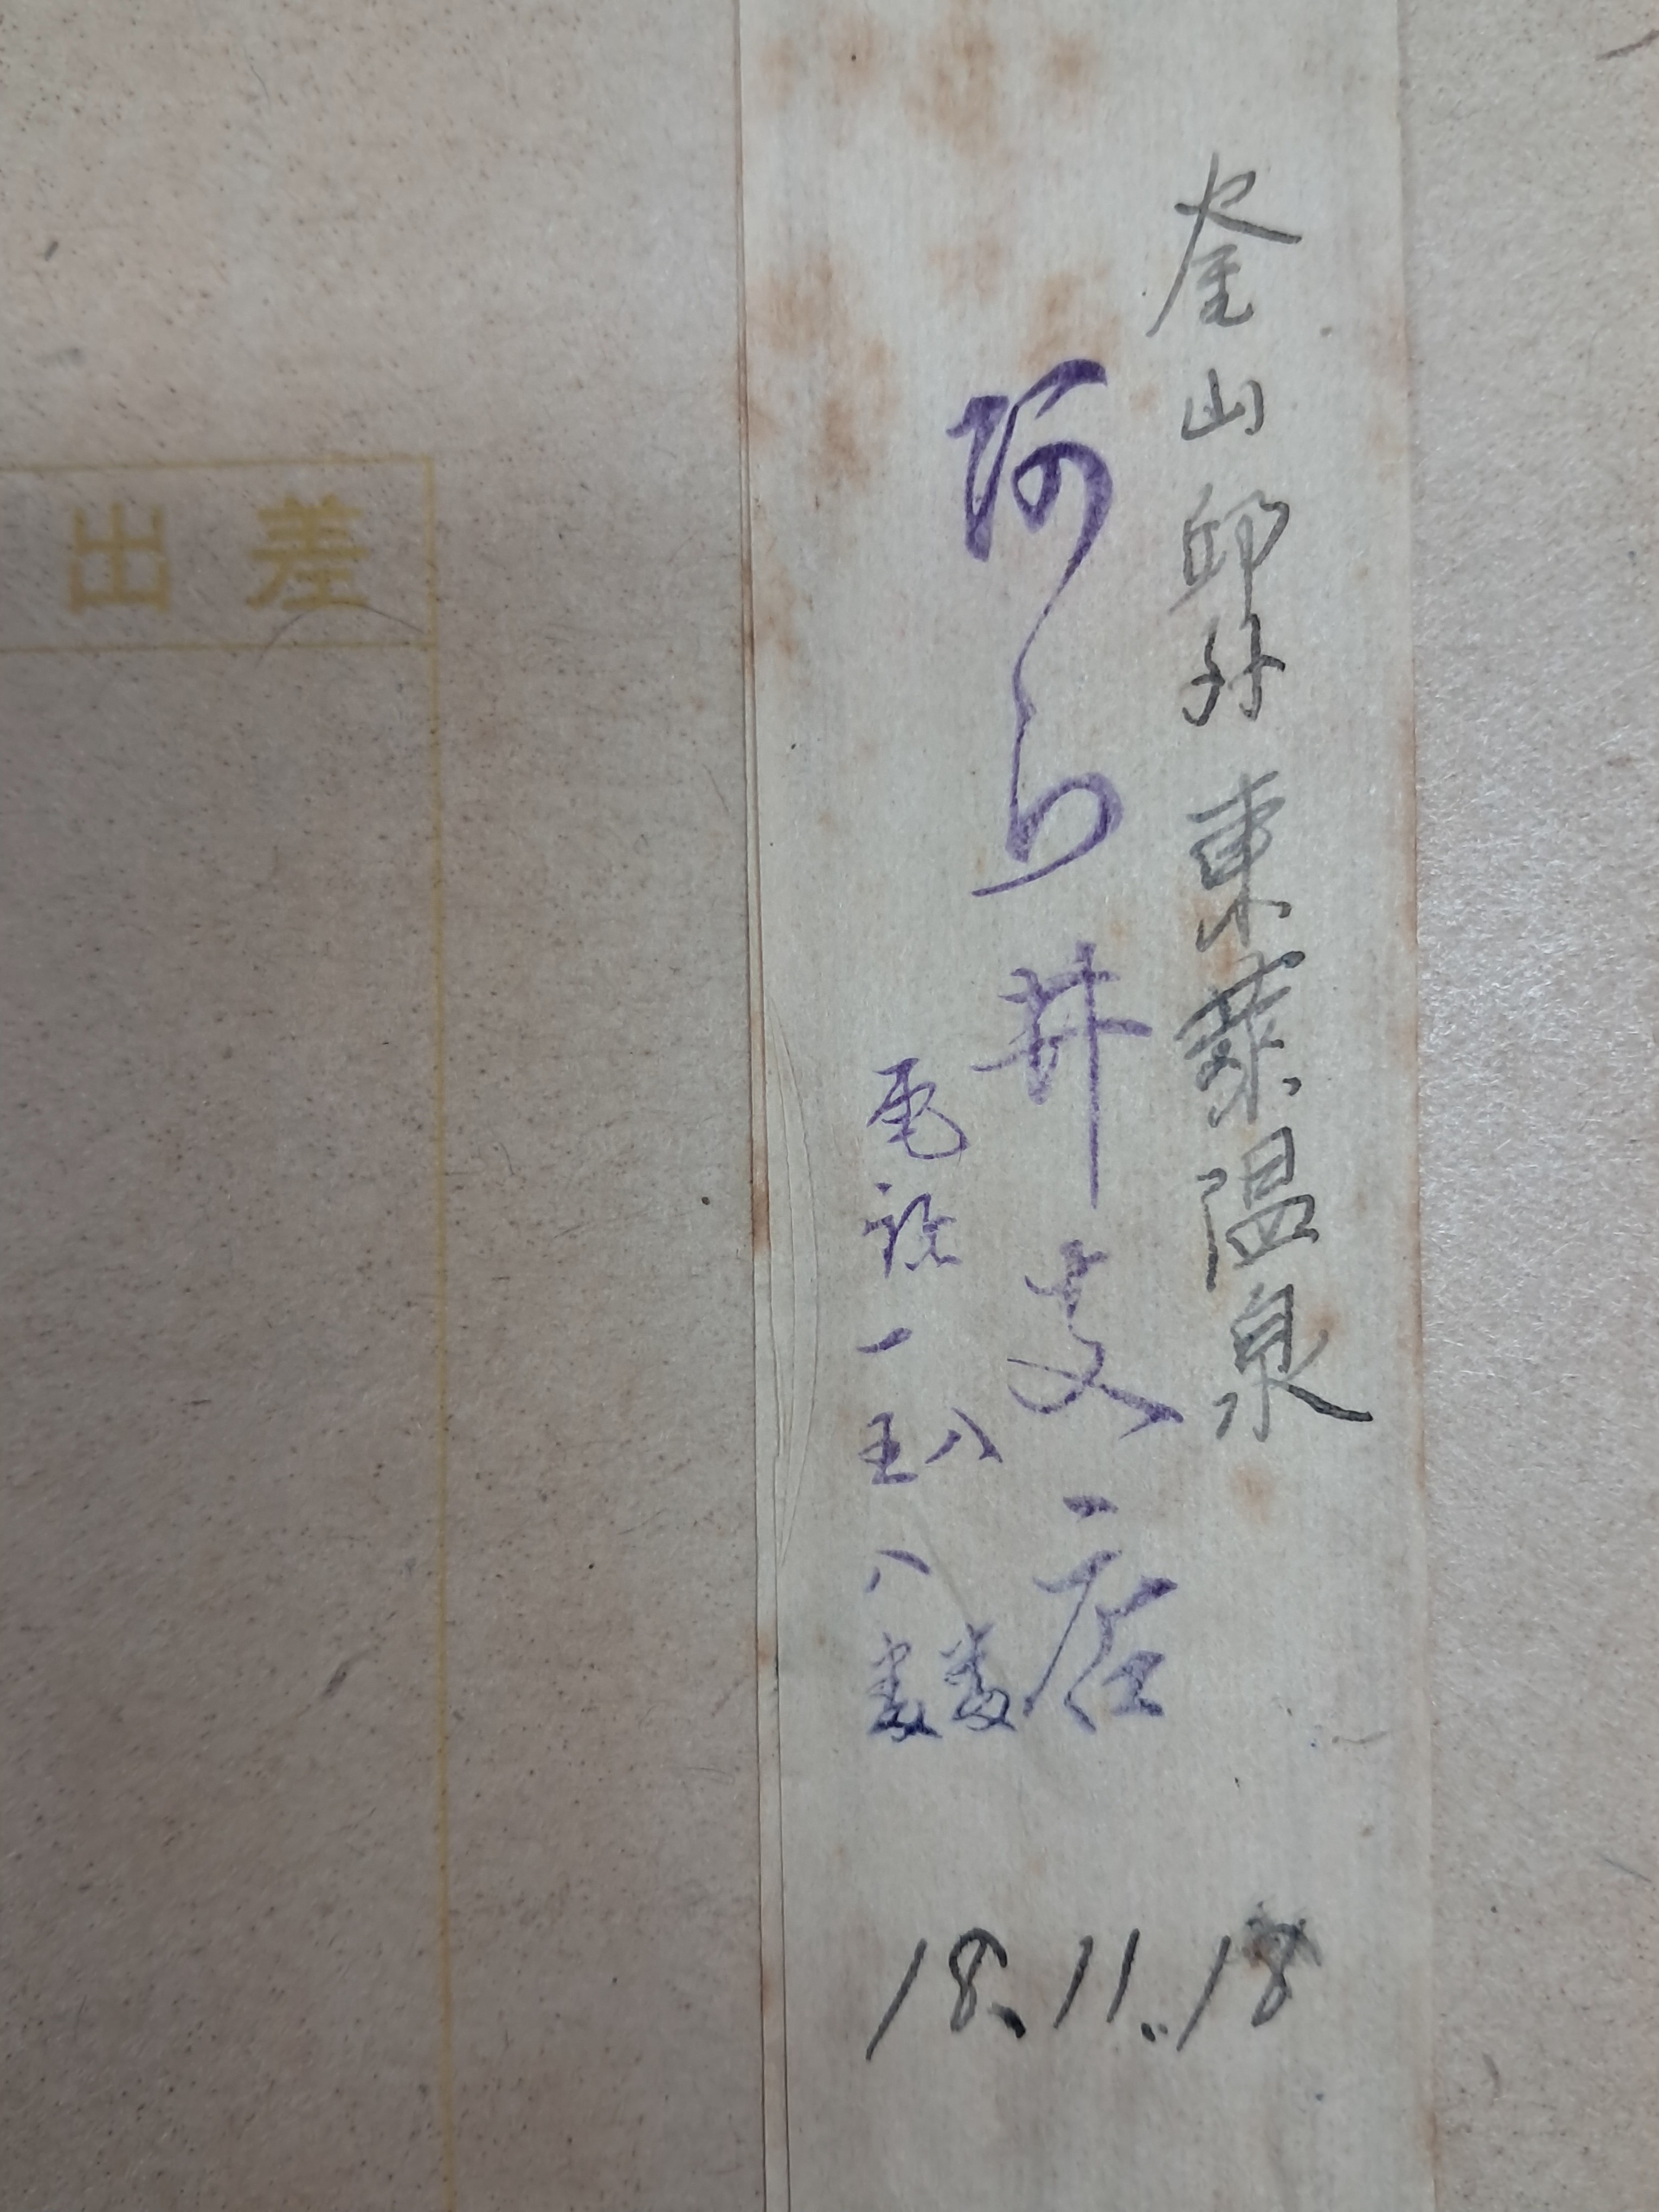 釜山郊外 東莱温泉
阿ら井支店
八番
電話一五八番
18.11.18
差出